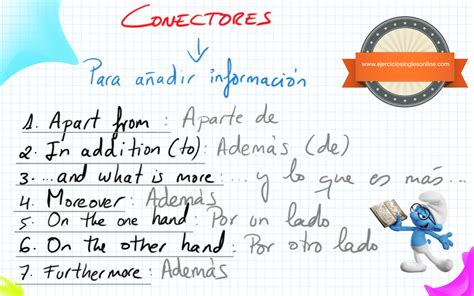 CONECTORES
Para añadir información
www.ejerciciosinglesonline.com
1. Apart from : Aparte de
2. In addition (to): Además (de)
3. ...and what is more... : ...y lo que es más...
4. Moreover : Además
5. On the one hand : Por un lado
6. On the other hand : Por otro lado
7. Furthermore : Además